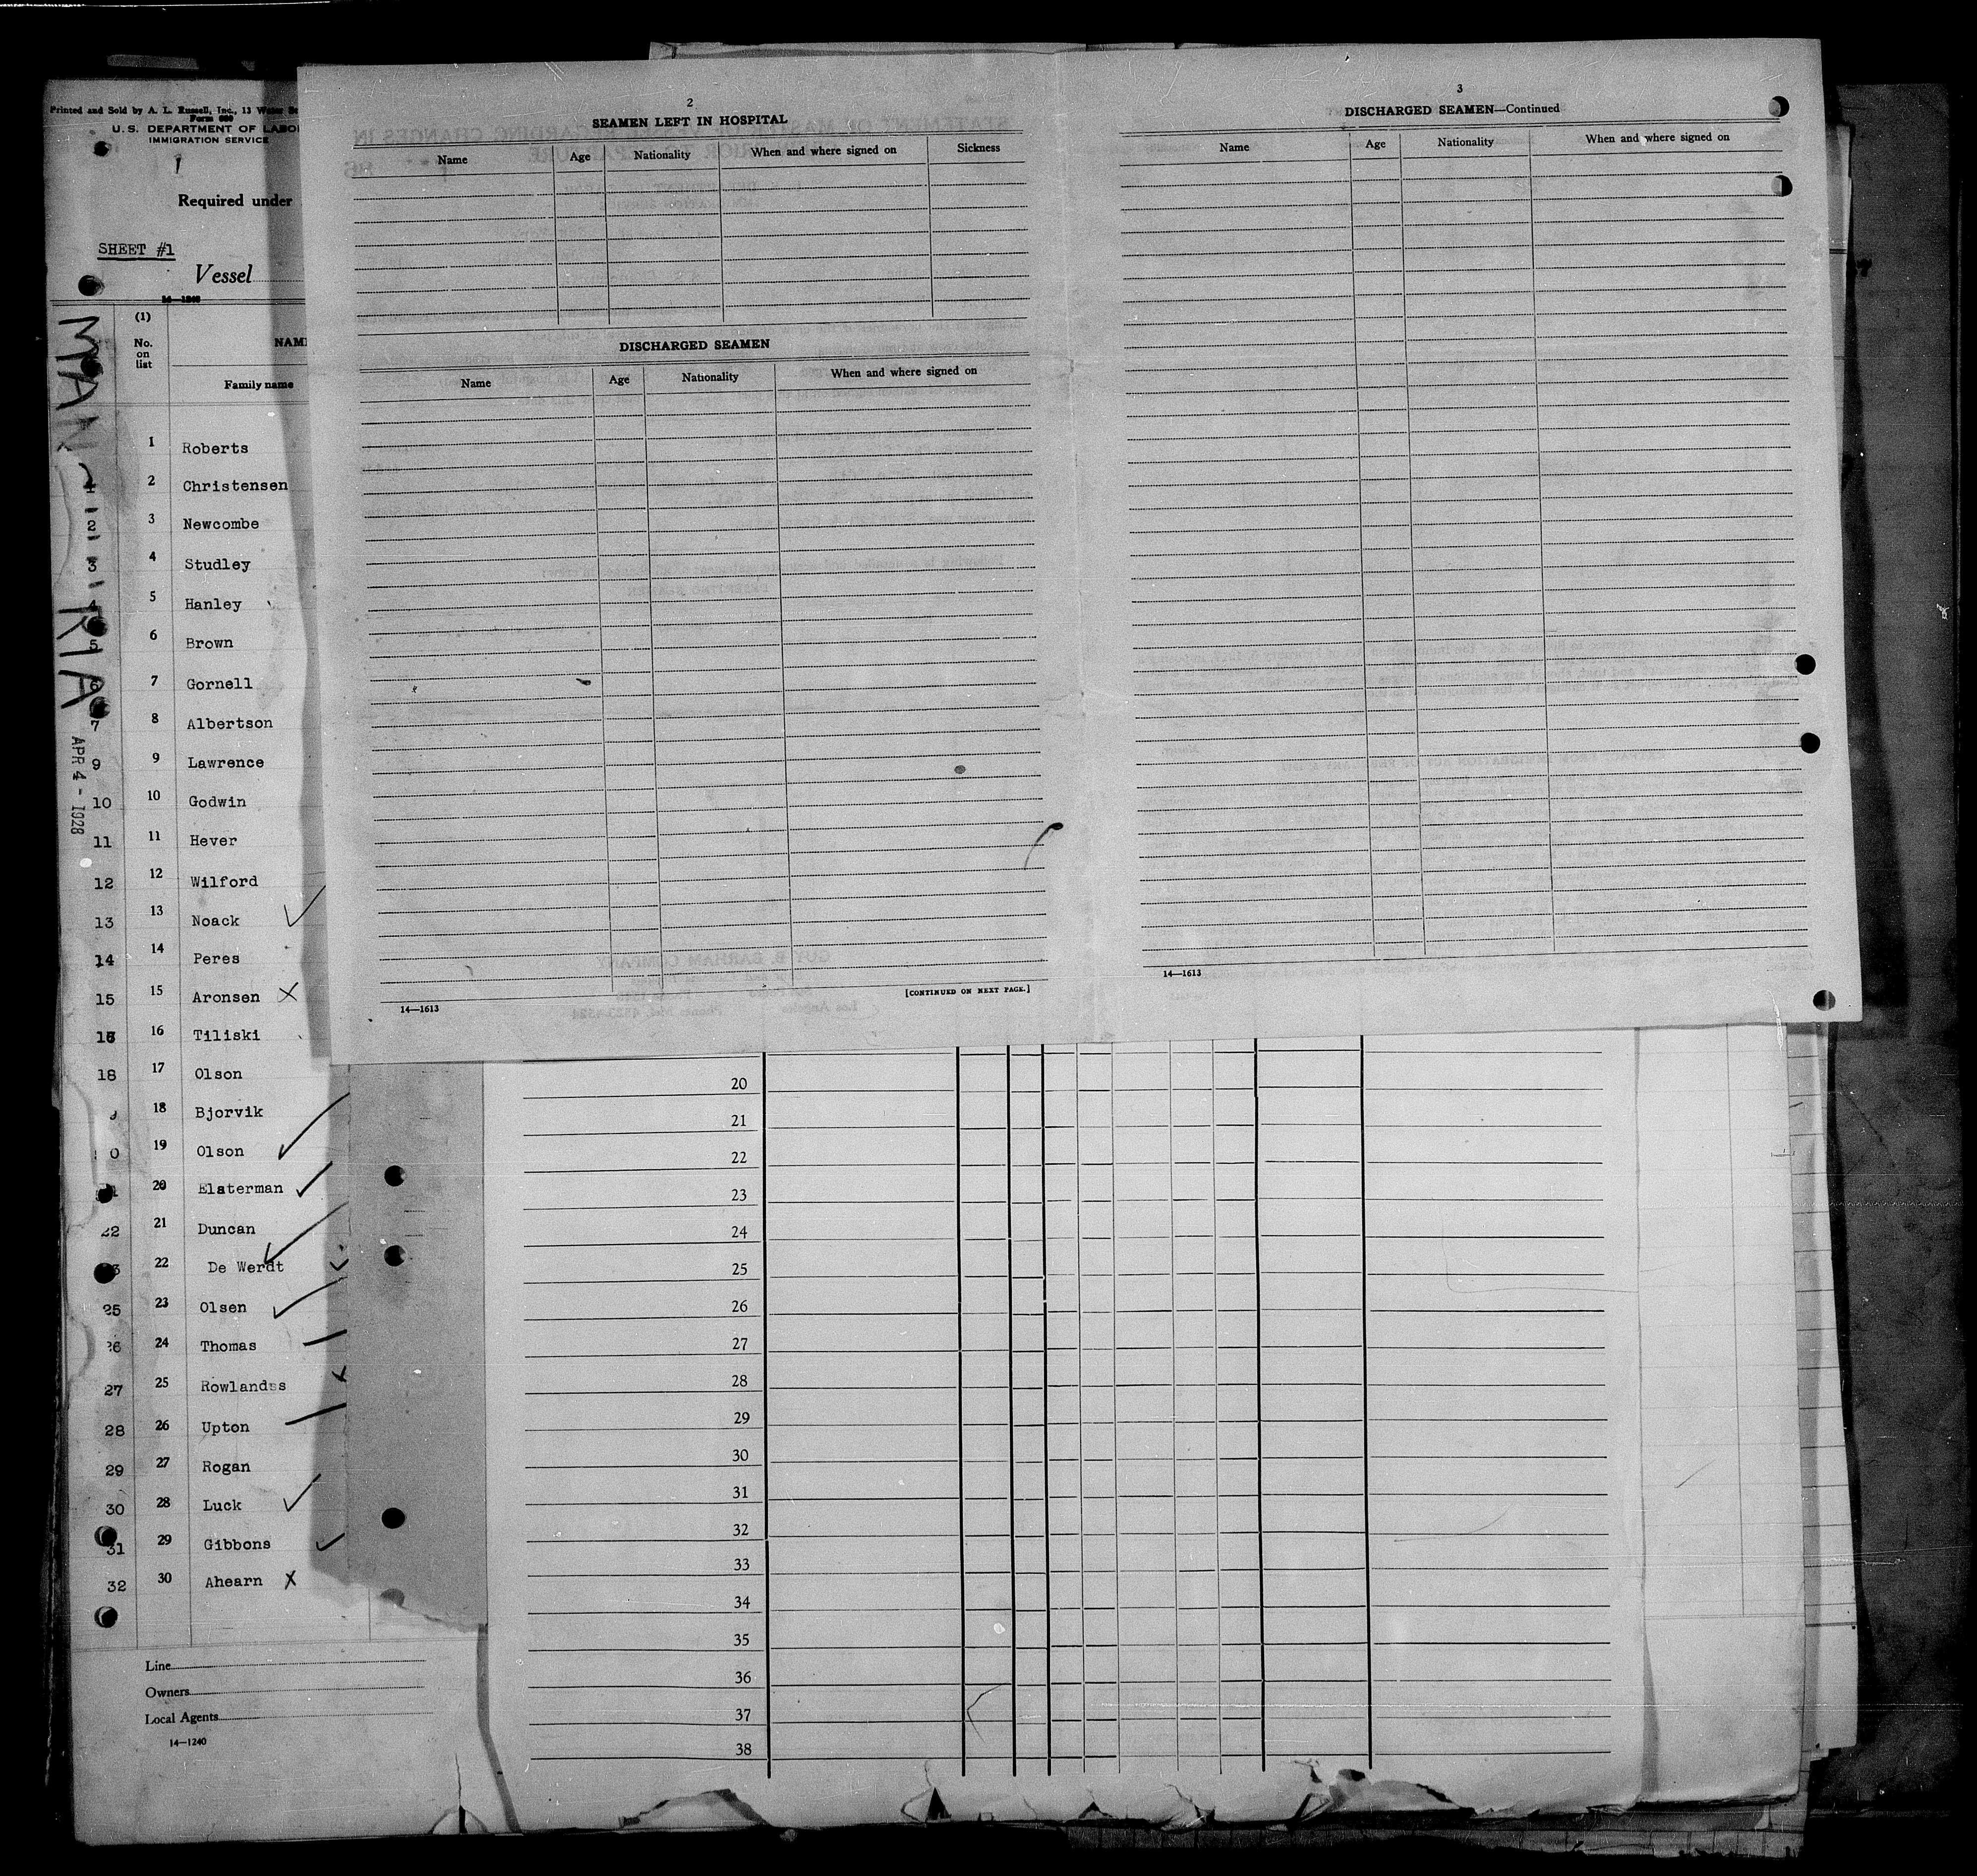 Printed and Sold by A. L. Russell, Inc., 13 Water
Form 689
U. S. DEPARTMENT OF LABO
IMMIGRATION SERVICE
1
Required under
SHEET #1
Vessel
14—1240
(1)
No. on list
NAM
Family name
MAN
RIA
APR 4 - 1928
1 Roberts
1 2 Christensen
2 3 Newcombe
3 4 Studley
4 5 Hanley
5 6 Brown
6 7 Gornell
7 8 Albertson
9 9 Lawrence
10 10 Godwin
11 11 Hever
12 12 Wilford
13 13 Noack
14 14 Peres
15 15 Aronsen X
16 Tiliski
18 17 Olson
18 Bjorvik
0 19 Olson
20 Elsterman
22 21 Duncan
3 22 De Werdt
25 23 Olsen
26 24 Thomas
27 25 Rowlandss
28 26 Upton
29 27 Rogan
30 28 Luck
31 29 Gibbons
32 30 Ahearn X
Line
Owners
Local Agents
14—1240
2
SEAMEN LEFT IN HOSPITAL
Name Age Nationality When and where signed on Sickness
DISCHARGED SEAMEN
Name Age Nationality When and where signed on
[CONTINUED ON NEXT PAGE.]
14—1613
3
DISCHARGED SEAMEN—Continued
Name Age Nationality When and where signed on
14—1613
20
21
22
23
24
25
26
27
28
29
30
31
32
33
34
35
36
37
38